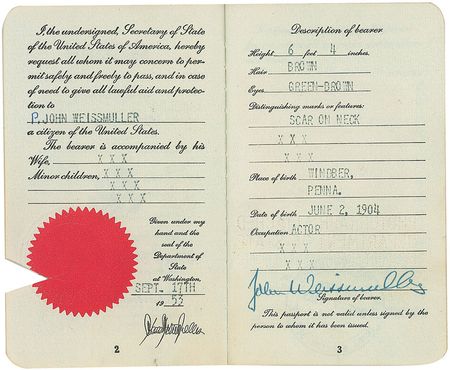 I, the undersigned, Secretary of State
of the United States of America, hereby
request all whom it may concern to per-
mit safely and freely to pass, and in case
of need to give all lawful aid and protec-
tion to
P. JOHN WEISSMULLER
a citizen of the United States.
The bearer is accompanied by his
Wife, X X X
Minor children, X X X
X X X
X X X
Given under my
hand and the
seal of the
Department of
State
at Washington,
SEPT. 17TH
1953
2
Description of bearer
Height 6 feet 4 inches.
Hair BROWN
Eyes GREEN-BROWN
Distinguishing marks or features:
SCAR ON NECK
X X X
X X X
Place of birth WINDBER,
PENNA.
Date of birth JUNE 2, 1904
Occupation ACTOR
X X X
X X X
John Weissmuller
Signature of bearer.
This passport is not valid unless signed by the
person to whom it has been issued.
3